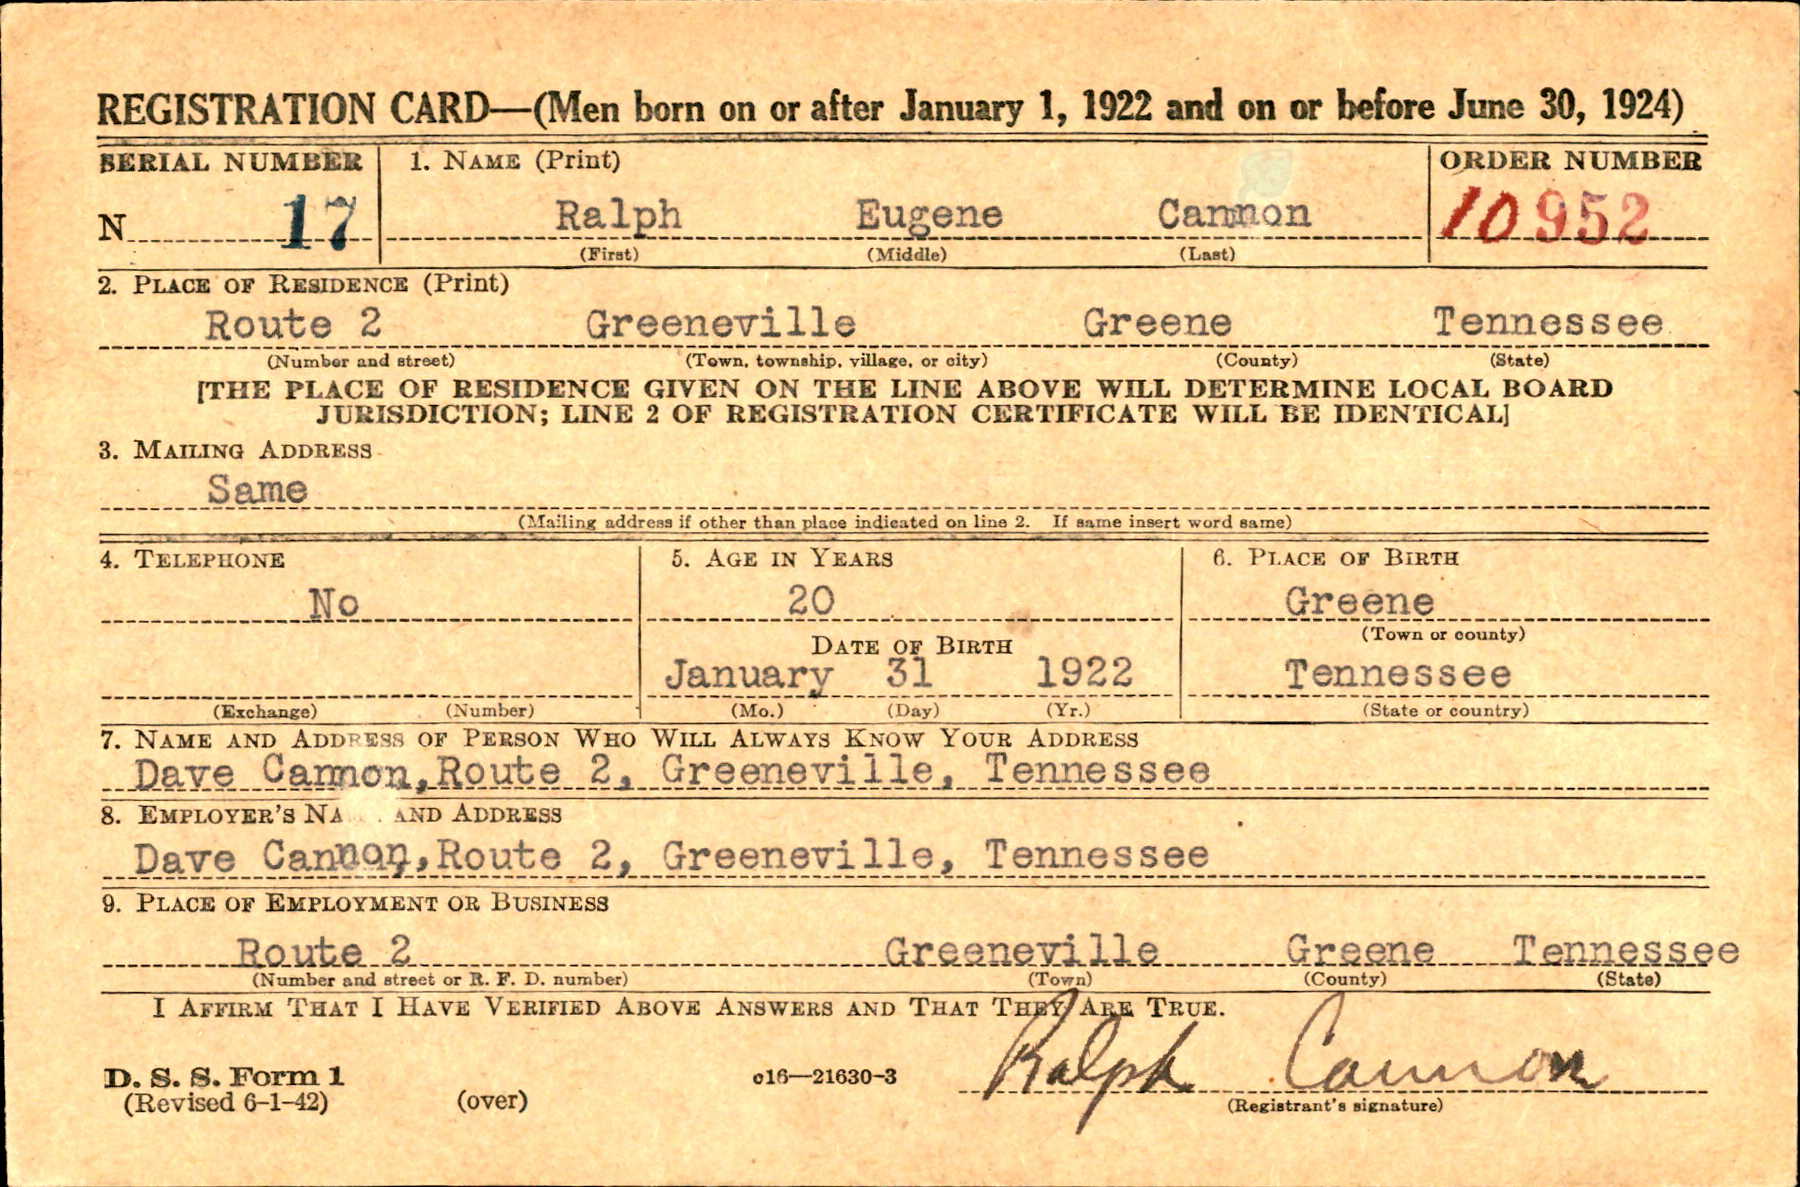 REGISTRATION CARD—(Men born on or after January 1, 1922 and on or before June 30, 1924)
SERIAL NUMBER 1. NAME (Print) ORDER NUMBER
N 17 Ralph Eugene Cannon 10952
(First) (Middle) (Last)
2. PLACE OF RESIDENCE (Print)
Route 2 Greeneville Greene Tennessee
(Number and street) (Town, township, village, or city) (County) (State)
[THE PLACE OF RESIDENCE GIVEN ON THE LINE ABOVE WILL DETERMINE LOCAL BOARD
JURISDICTION; LINE 2 OF REGISTRATION CERTIFICATE WILL BE IDENTICAL]
3. MAILING ADDRESS
Same
(Mailing address if other than place indicated on line 2. If same insert word same)
4. TELEPHONE 5. AGE IN YEARS 6. PLACE OF BIRTH
No 20 Greene
(Town or county)
DATE OF BIRTH
January 31 1922 Tennessee
(Exchange) (Number) (Mo.) (Day) (Yr.) (State or country)
7. NAME AND ADDRESS OF PERSON WHO WILL ALWAYS KNOW YOUR ADDRESS
Dave Cannon, Route 2, Greeneville, Tennessee
8. EMPLOYER'S NA AND ADDRESS
Dave Cannon, Route 2, Greeneville, Tennessee
9. PLACE OF EMPLOYMENT OR BUSINESS
Route 2 Greeneville Greene Tennessee
(Number and street or R. F. D. number) (Town) (County) (State)
I AFFIRM THAT I HAVE VERIFIED ABOVE ANSWERS AND THAT THEY ARE TRUE.
D. S. S. Form 1 c16—21630-3 Ralph Cannon
(Revised 6-1-42) (over) (Registrant's signature)